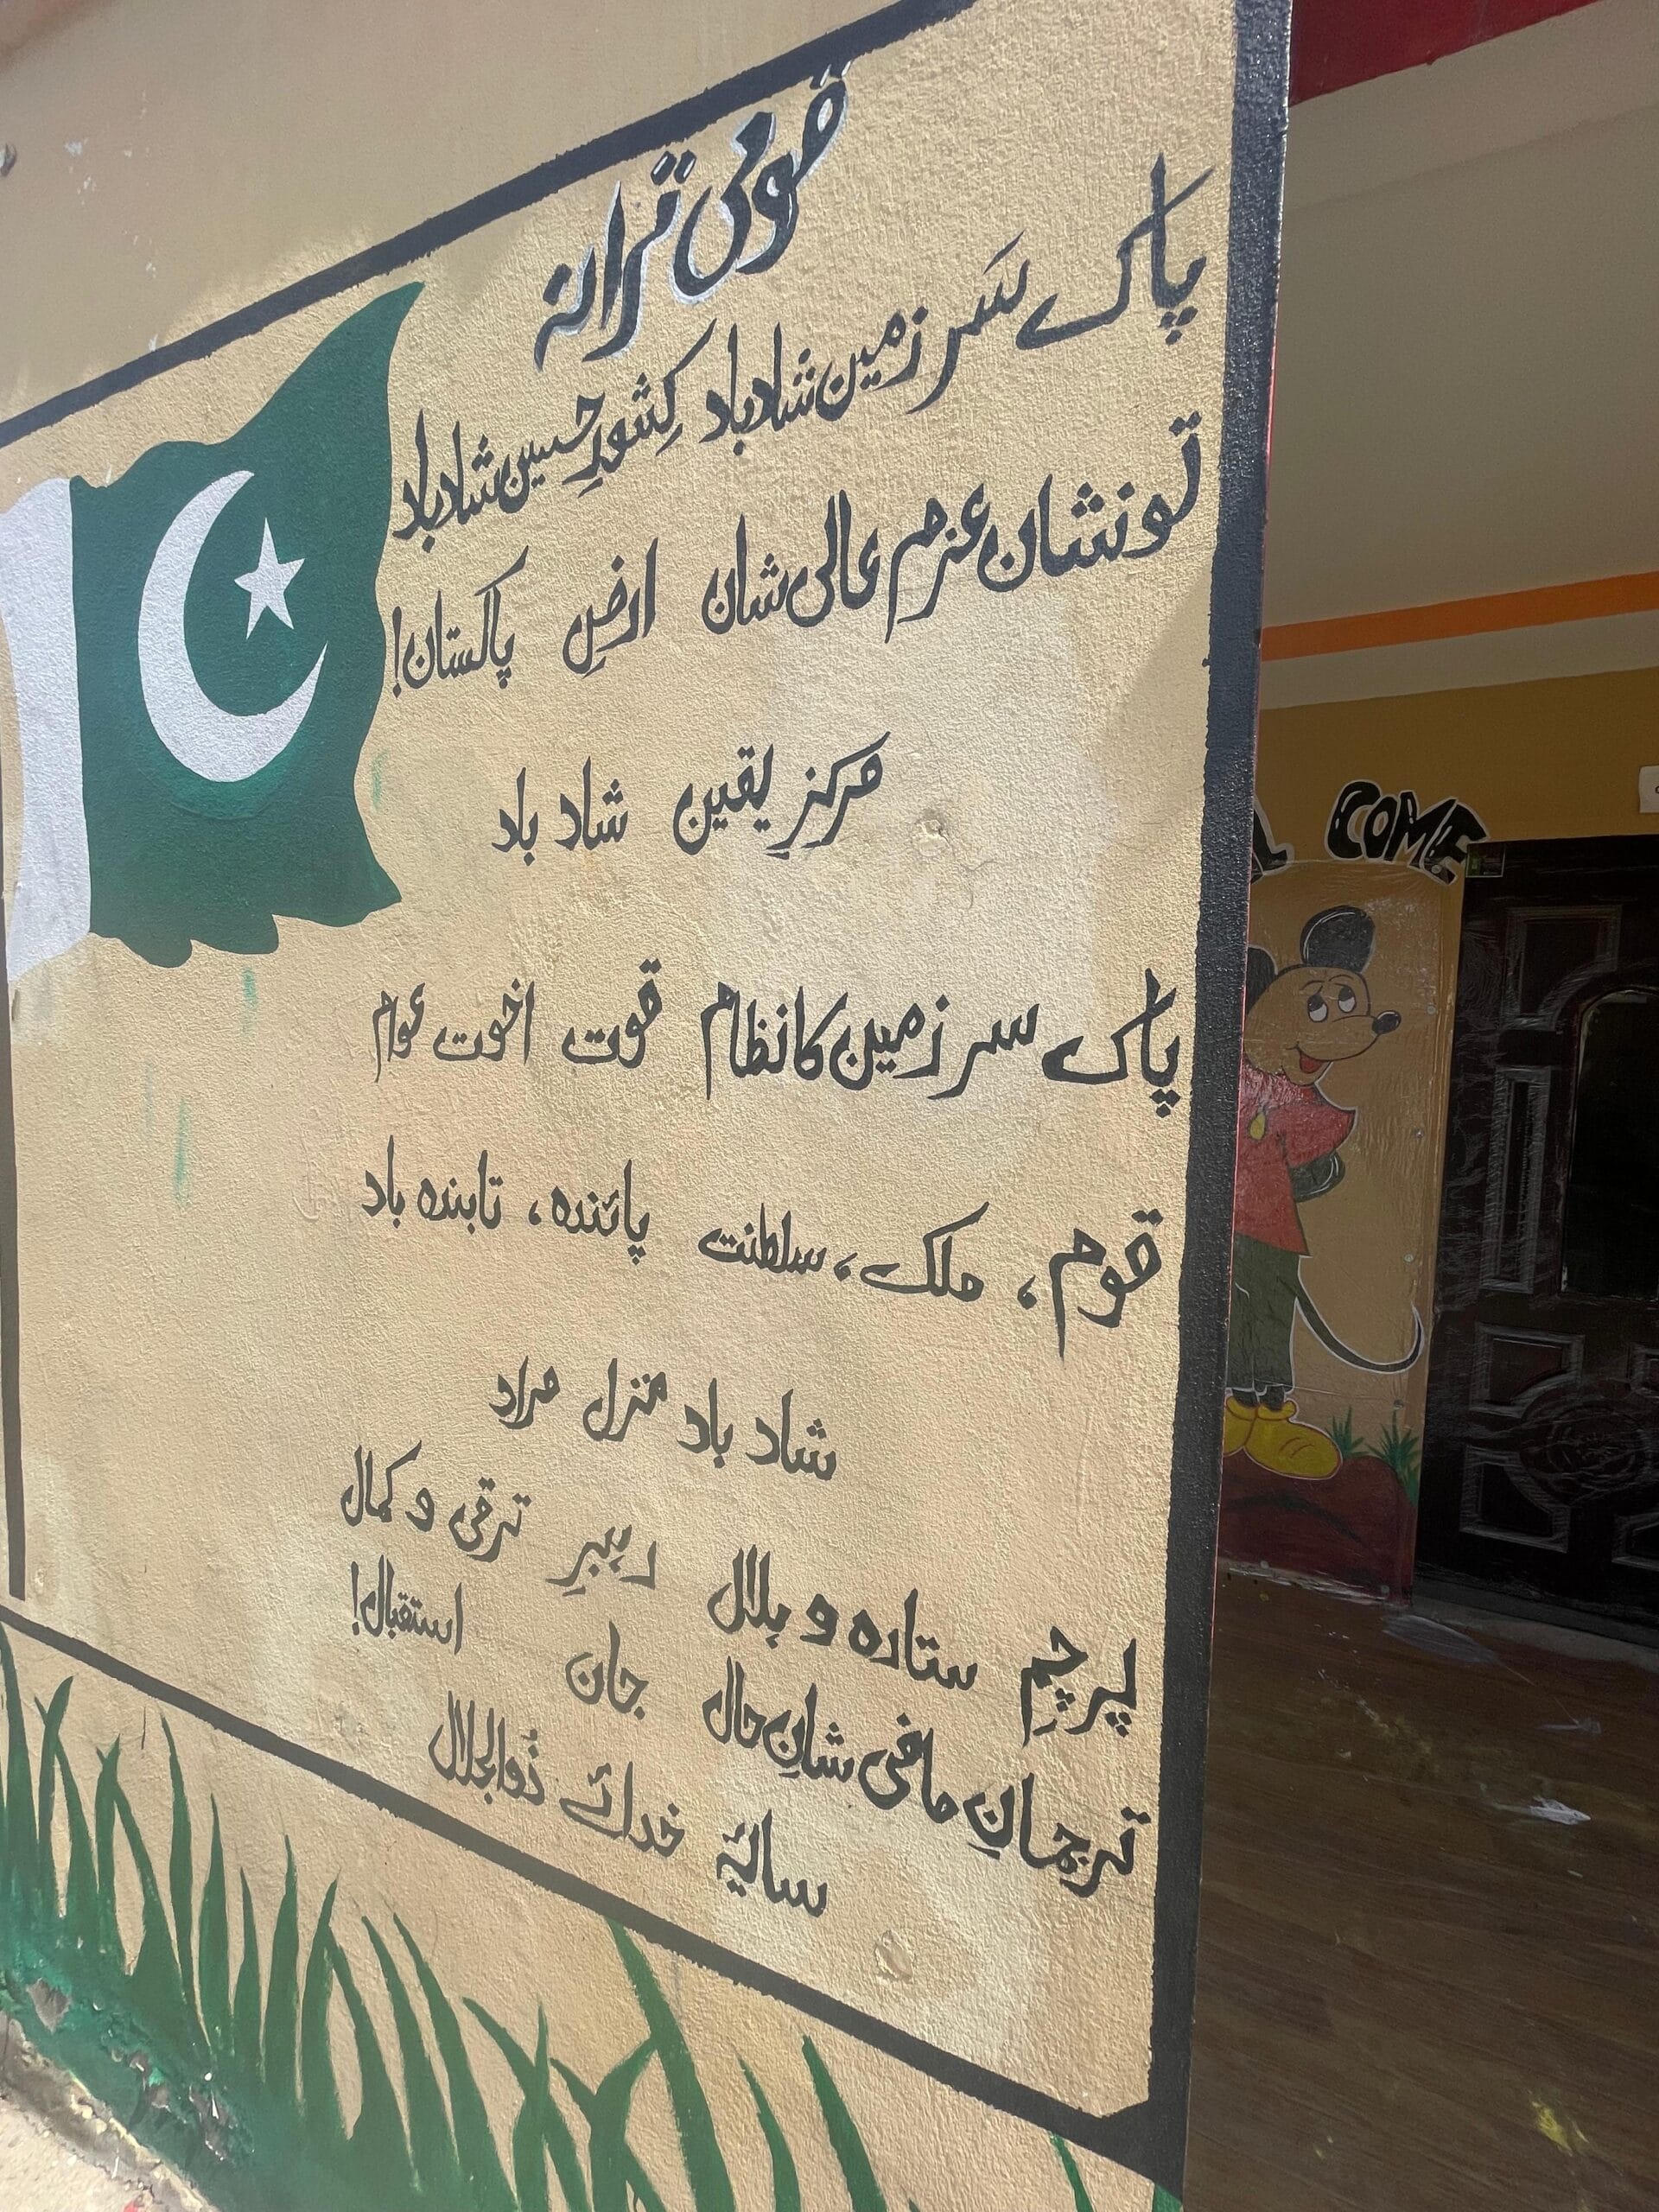 قومی ترانہ
پاک سَر زمین شاد باد کِشورِ حسین شاد باد
تو نشان عزمِ عالی شان ارضِ پاکستان!
مرکزِ یقین شاد باد
پاک سر زمین کا نظام قوت اخوت عوام
قوم، ملک، سلطنت پائندہ، تابندہ باد
شاد باد منزل مراد
پرچمِ ستارہ و ہلال رہبرِ ترقی و کمال
ترجمانِ ماضی شانِ حال جان استقبال!
سایۂ خدائے ذُوالجلال
COME